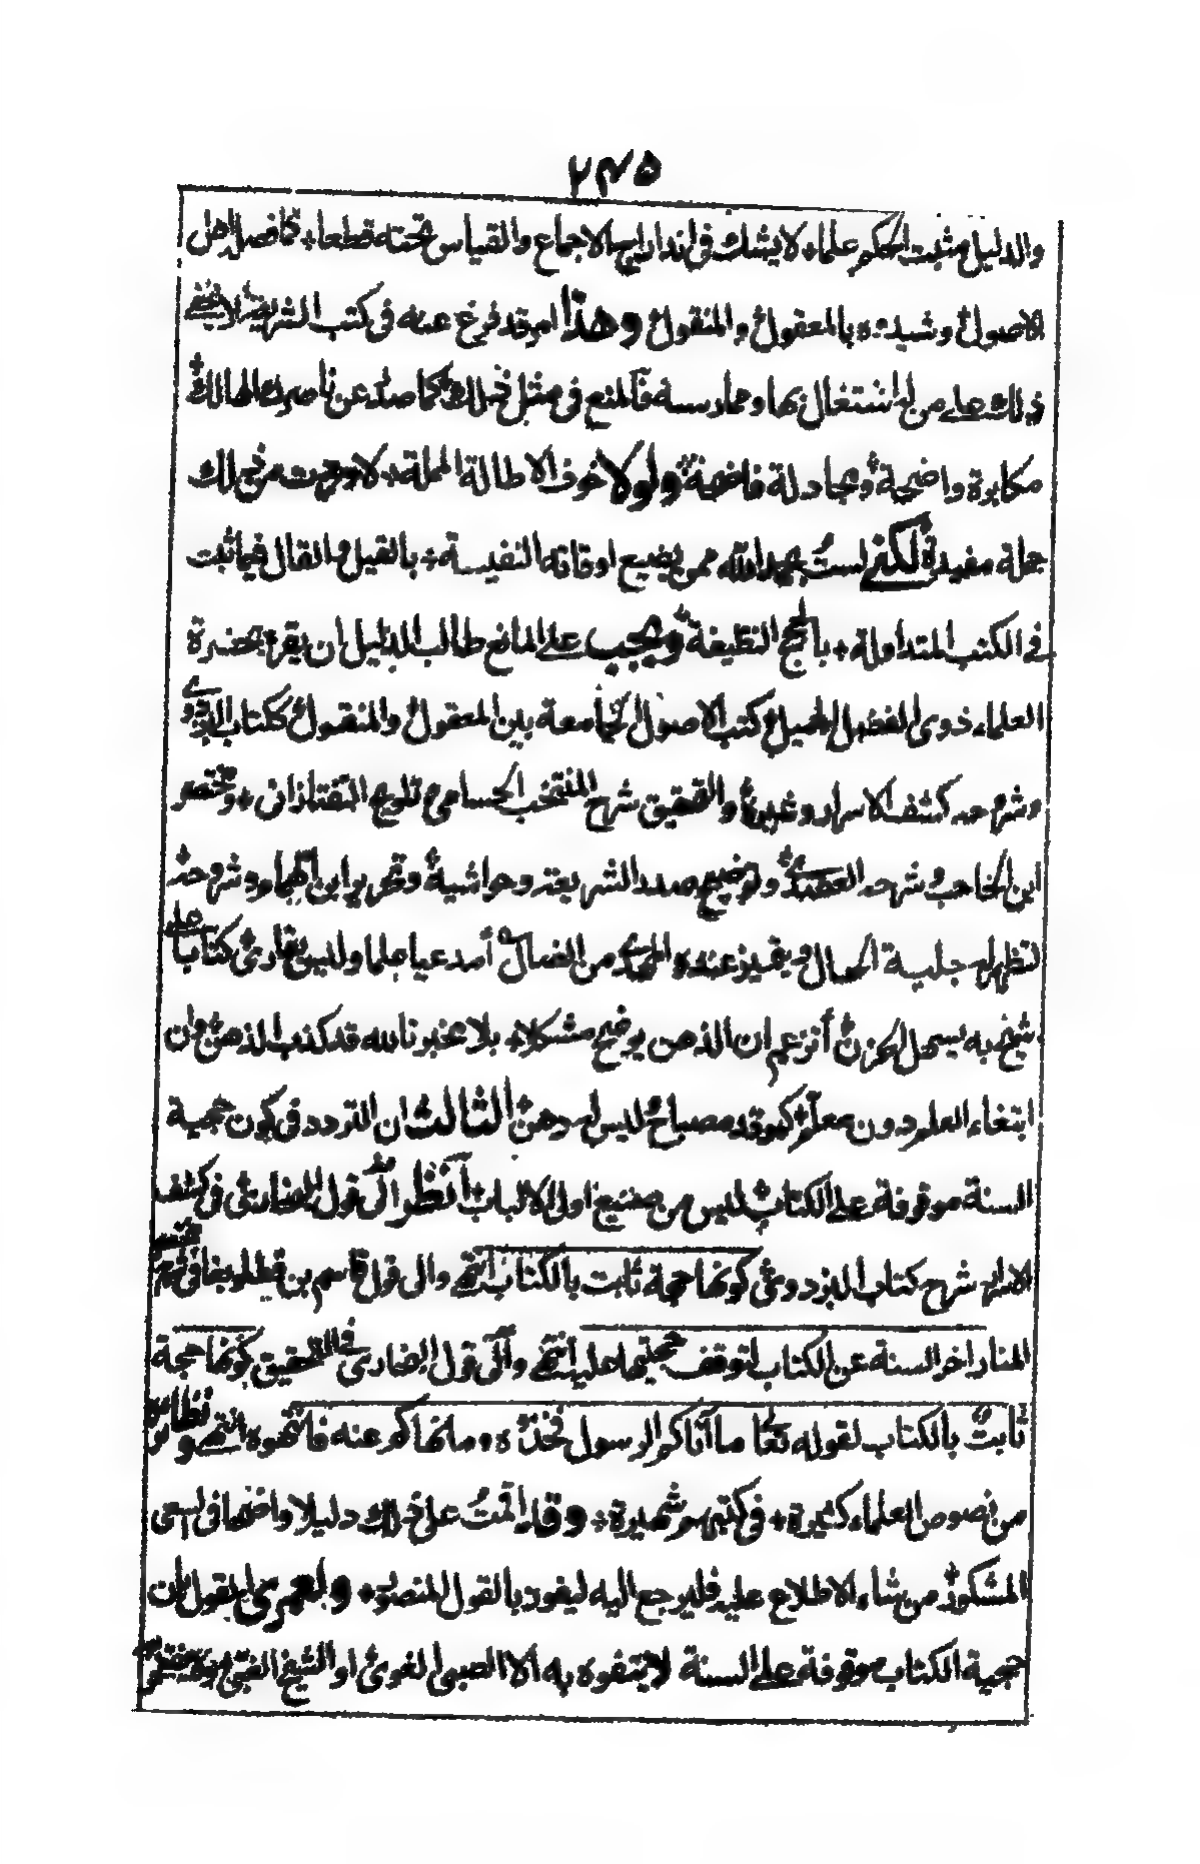 ٢٤٥
والدليل مثبت الحكم علماء لا يشك في اندراج الاجماع والقياس تحته قطعا، كما فصل اهل
الاصول وشيده بالمعقول والمنقول وهذا امر قد فرغ عنه في كتب الشريعة لا يخفى
ذلك على من له اشتغال بها وممارسة فالمنع في مثل ذلك كما صدر عن ناصرك الهالك
مكابرة واضحة ومجادلة فاضحة ولولا خوف الاطالة المملة لاوردت من ذلك
جملة مفيدة لكني لست بحمد الله ممن يضيع اوقاته النفيسة، بالقيل والقال فيما ثبت
في الكتب المتداولة، بالحجج النظيفة ويجب على المانع طالب الدليل ان يقرء بحضرة
العلماء ذوى الفضل الجميل كتب الاصول الجامعة بين المعقول والمنقول ككتاب البزدوي
وشروحه كشف الاسرار وغيره والتحقيق شرح المنتخب الحسامي وتلويح التفتازاني، ومختصر
ابن الحاجب وشرحه العضدي وتوضيح صدر الشريعة وحواشيه وتحرير ابن الهمام وشروحه
لتظهر له جلية الحال ويتميز عنده الهدى من الضلال أمدعيا علما وليس بقارئ كتابا على
شيخ به يسهل الحزن أتزعم ان الذهن يوضح مشكلا، بلا مخبر تالله قد كذب الذهن وان
ابتغاء العلم دون معلم كموقد مصباح ليس له دهن الثالث ان التردد في كون حجية
السنة موقوفة على الكتاب ليس من صنيع اولى الالباب انظر الى قول البخارى في كشف
الاسرار شرح كتاب البزدوى كونها حجة ثابت بالكتاب انتهى والى قول قاسم بن قطلوبغا في شرح مختصر
المنار اخر السنة عن الكتاب لتوقف حجيتها عليه انتهى وألى قول البخارى في التحقيق كونها حجة
ثابت بالكتاب لقوله تعالى ما آتاكم الرسول فخذوه وما نهاكم عنه فانتهوه انتهى ونظائره
من نصوص العلماء كثيرة، في كتبهم شهيرة، وقد اقمت على ذلك دليلا واضحا في السعى
المشكور من شاء الاطلاع عليه فليرجع اليه ليفوز بالقول المنصور، ولعمرى القول بان
حجية الكتاب موقوفة على السنة لا يتفوه به الا الصبى الغوى او الشيخ الغبى